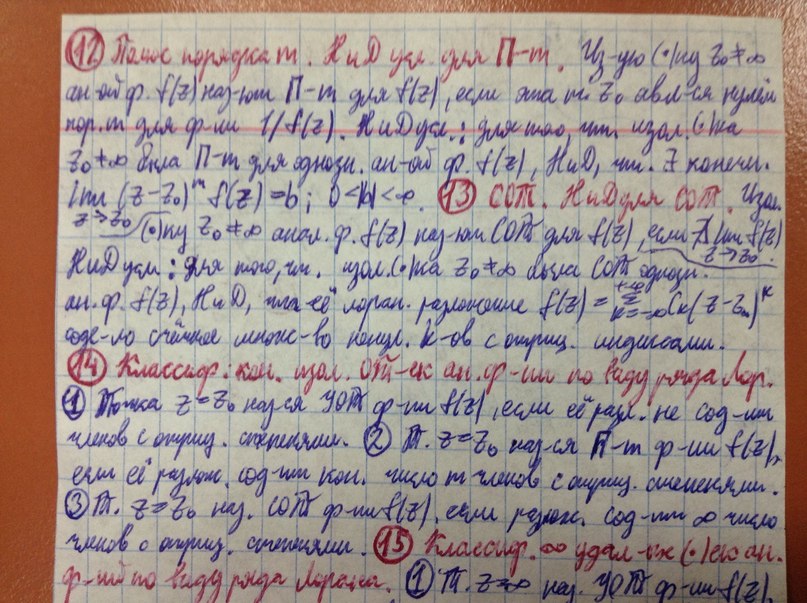 ⑫ Полюс порядка m. НиД усл. для П-m. Из-ую (•)ку z₀≠∞
ан-ой ф. f(z) наз-ют П-m для f(z), если эта т. z₀ явл-ся нулём
пор. m для ф-ии 1/f(z). НиД усл.: для того, чт. изол. (•)ка
z₀≠∞ была П-m для однозн. ан-ой ф. f(z), НиД, чт. ∃ конечн.
lim (z-z₀)ᵐ f(z) = b; 0<|b|<∞. ⑬ СОТ. НиД для СОТ. Изол.
z→z₀ (•)ку z₀≠∞ анал. ф. f(z) наз-ют СОТ для f(z), если ∄ lim f(z)
z→z₀
НиД усл: для того, чт. изол. (•)ка z₀≠∞ была СОТ однозн.
ан. ф. f(z), НиД, чтоб её лоран. разложение f(z) = Σ k=-∞ +∞ Cₖ(z-z₀)ᵏ
соде-ло счётное множ-во ненул. к-ов с отриц. индексами.
⑭ Классиф. кон. изол. ОТ-ек ан. ф-ии по виду ряда Лор.
① Точка z=z₀ наз-ся УОТ ф-ии f(z), если её разл. не сод-ит
членов с отриц. степенями. ② Т. z=z₀ наз-ся П-m ф-ии f(z),
если её разлож. сод-ит кон. число m членов с отриц. степенями.
③ Т. z=z₀ наз. СОТ ф-ии f(z), если разлож. сод-ит ∞ число
членов с отриц. степенями. ⑮ Классиф. ∞ удал-ых (•)ек ан.
ф-ий по виду ряда Лорана. ① Т. z=∞ наз. УОТ ф-ии f(z),